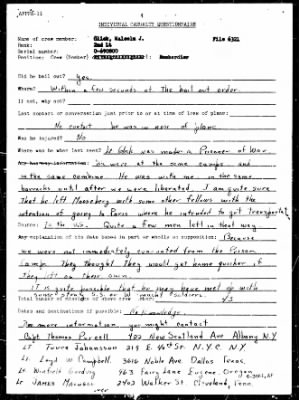 INDIVIDUAL CASUALTY QUESTIONNAIRE
Name of crew member: Glick, Malcolm J. File 6321
Rank: 2nd Lt
Serial number: O-690800
Position: Crew (Bomber) Bombardier
Did he bail out? Yes.
Where? Within a few seconds of the bail out order.
If not, why not?
Last contact or conversation just prior to or at time of loss of plane:
No contact he was in nose of plane
Was he injured? No
Where was he when last seen? Lt Glick was made a Prisoner of War
Any hearsay information: We were at the same camps and
in the same combine. He was with me in the same
barracks until after we were liberated. I am quite sure
that he left Mooseberg with some other fellows with the
intention of going to Paris where he intended to get transportation
Source: to the U.S. Quite a few men left in that way.
Any explanation of his fate based in part or wholly on supposition: Because
we were not immediately evacuated from the Prison
Camp. They thought they would get home quicker if
they left on their own.
It is quite possible that he may have met up with
some
Total number of missions of above crew member: 43
Dates and destinations if possible: No Knowledge.
For more information you might contact
Capt Thomas Purcell 400 New Scotland Ave Albany N.Y
Lt Ture Johansson 215 E. St N.Y.C. N.Y.
Lt. Loyd W Campbell. 3616 Noble Ave Dallas Texas.
Lt Winfield Gording 963 Fairy Lane Eugene. Oregon.
Lt James 2403 Walker St. Cleveland, Tenn.